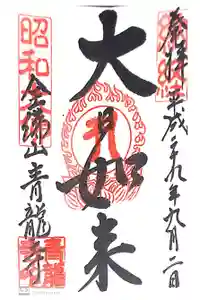 奉拝 平成二十九年九月二日
大日如来
昭和
金浄山 青龍寺
青龍寺